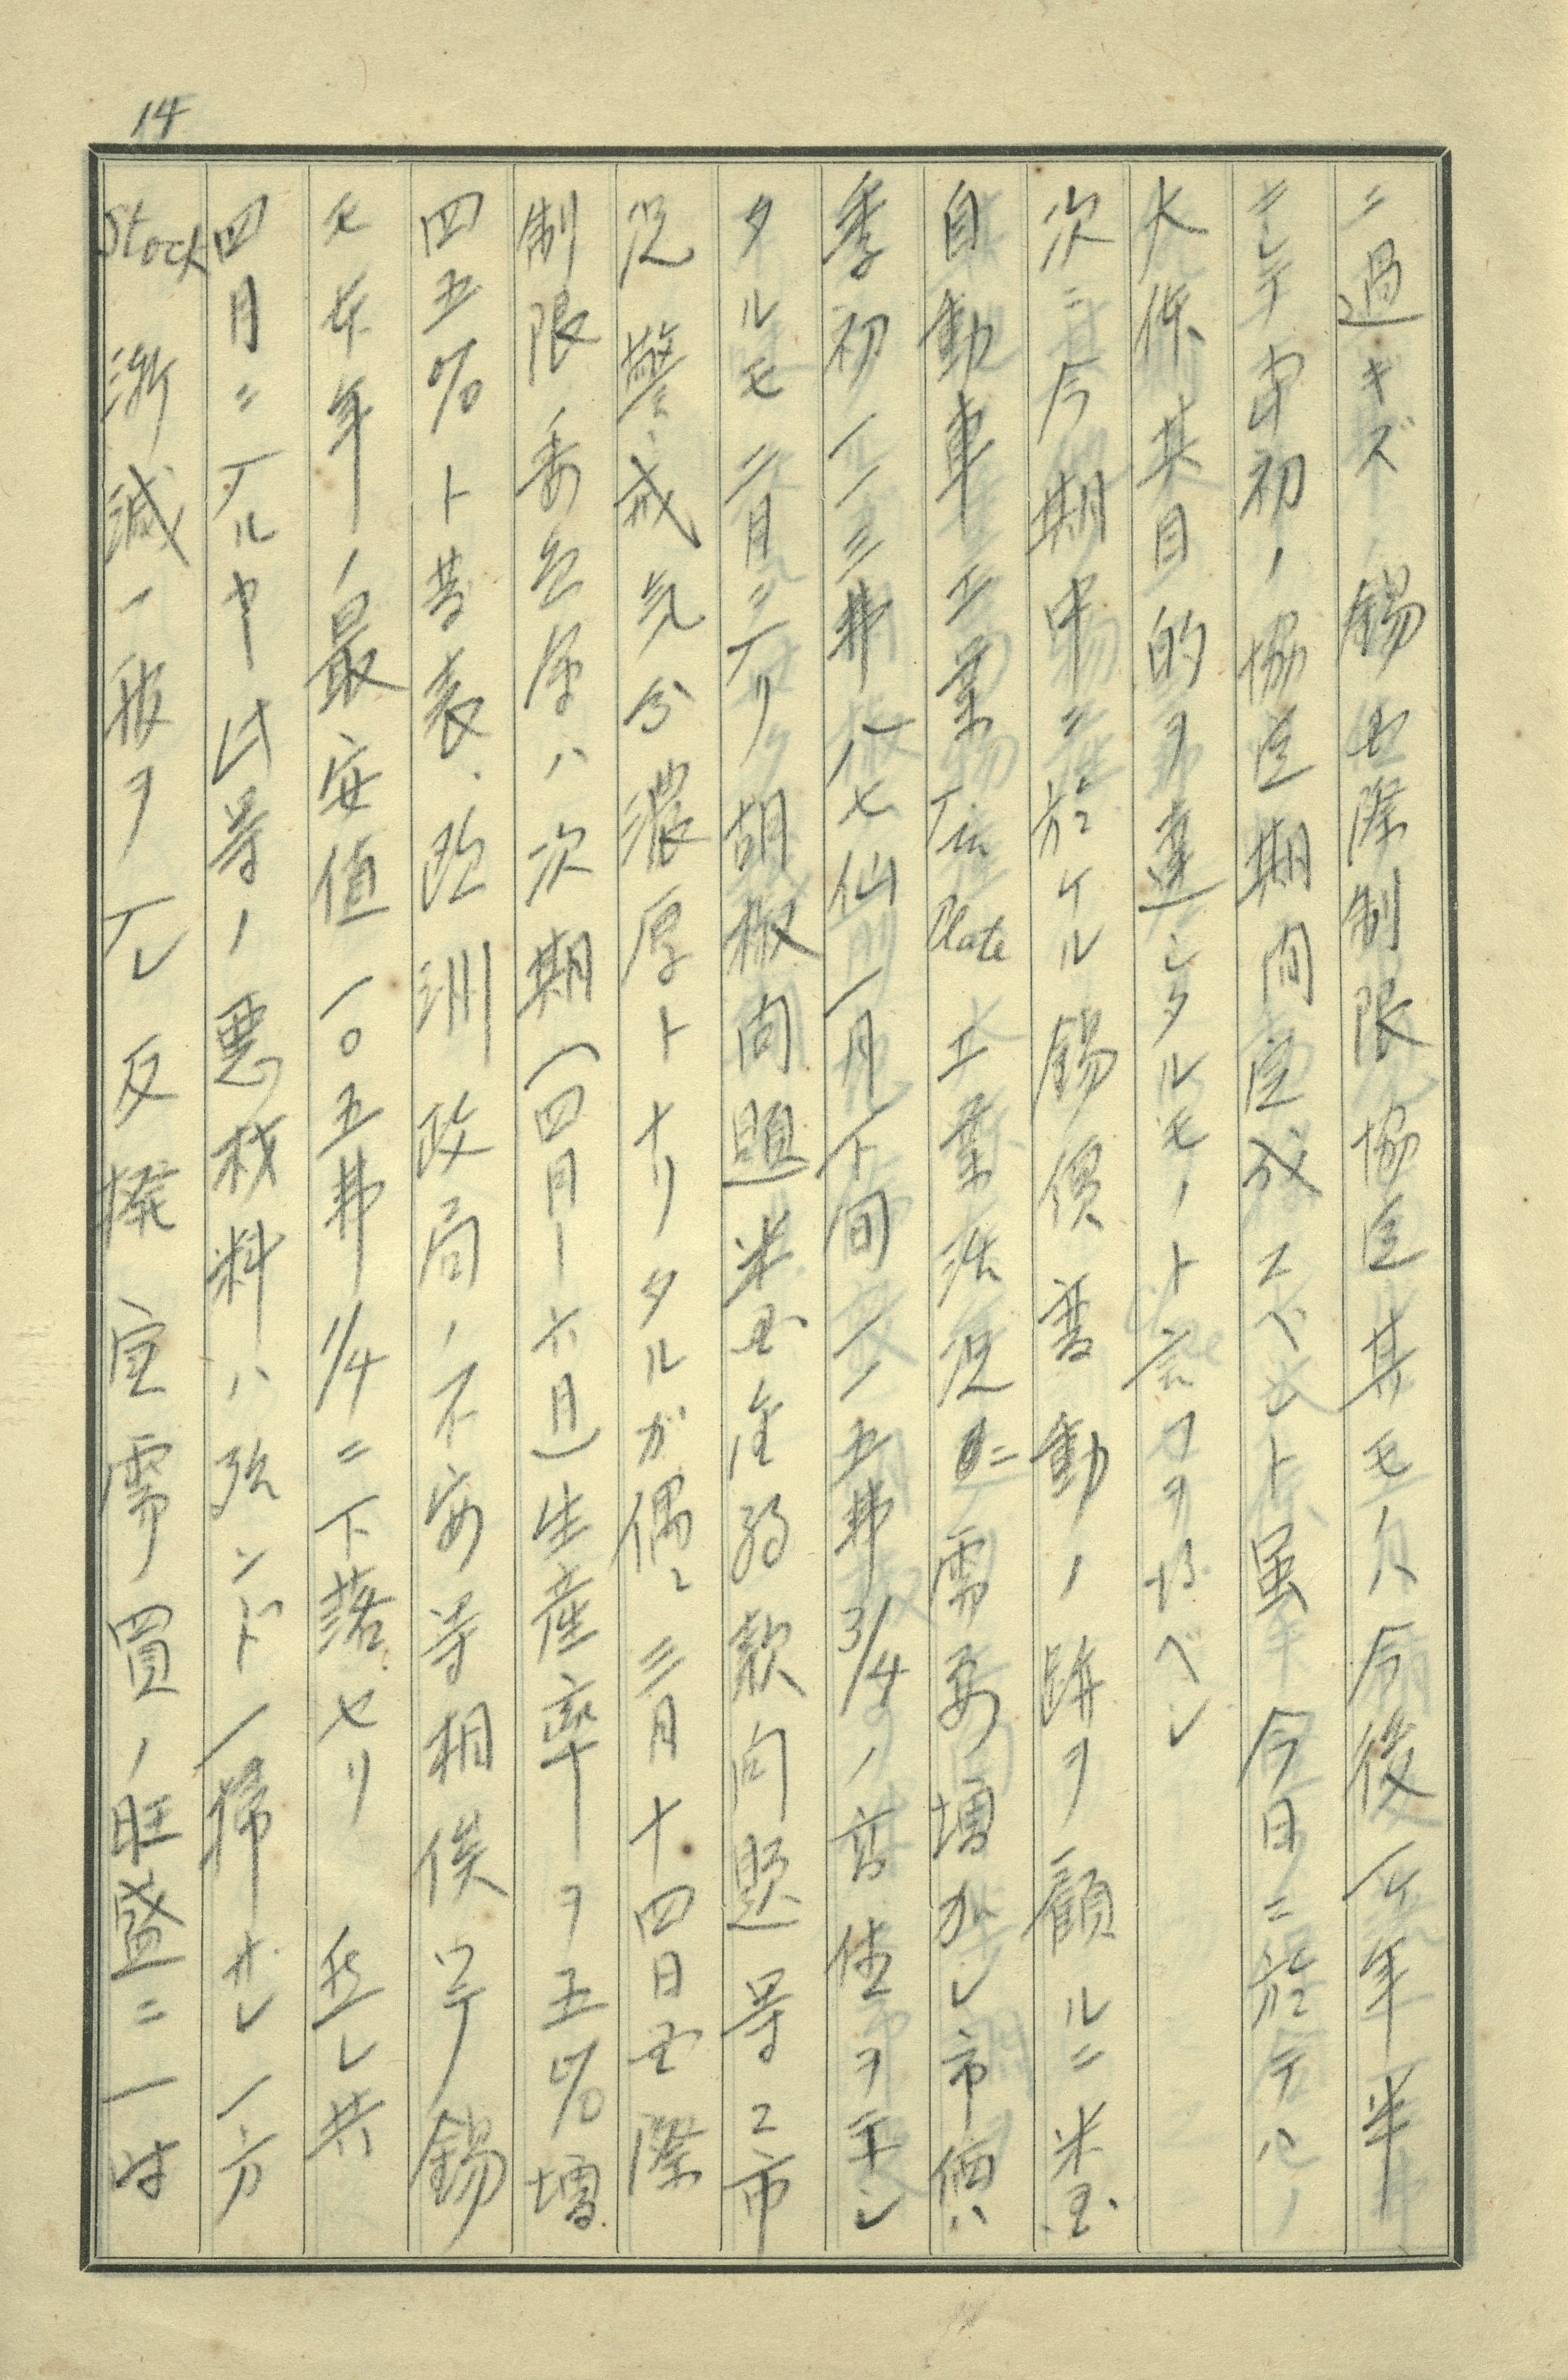 14
ニ過ギズ 錫国際制限協定其モノハ今後一ヶ年半
ニシテ当初ノ協定期間完成スベシト虽 今日ニ於テハ
大体其目的ヲ達シタルモノト言フヲ得ベシ
次ニ今期中ニ於ケル錫價変動ノ跡ヲ顧ルニ米国
自動車工業 Tin Plate 工業活況ニ需要増加シ市價ハ
季初一一三弗八七仙 一月下旬一一五弗3/4ノ高値ヲ示シ
タルモ 二月ニ入リ胡椒問題 米国金約款問題等ニ市
況警戒気分濃厚トナリタルガ偶々三月十四日国際
制限委員会ハ次期(四月―六月)生産率ヲ五%増
四五%ト発表、欧洲政局ノ不安等相俟ツテ錫
モ本年ノ最安値一〇五弗1/4ニ下落セリ 然シ共
四月ニ入ルヤ此等ノ悪材料ハ殆ンド一掃サレ一方
Stock漸減ノ報ヲ入レ反撥 実需買ノ旺盛ニ一時